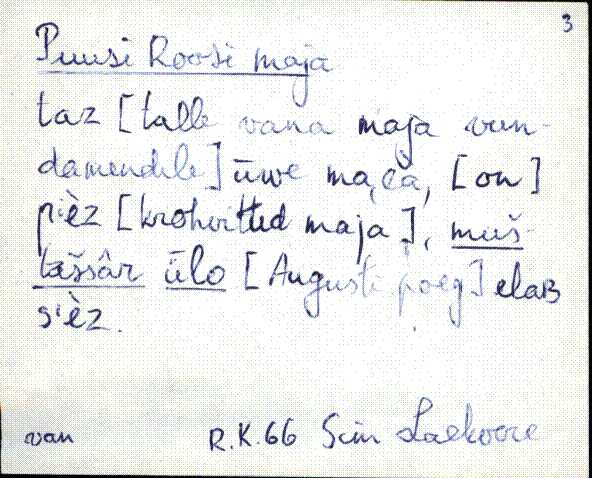 3
Puusi Roosi maja
taz [talle vana maja vun-
damendile] ūwe maja, [on]
pièz [krohvittud maja], muš-
tàšsâr ūlo [Augusti poeg] elaʙ
s'èz.
van R.K.66 Siim Laekoore